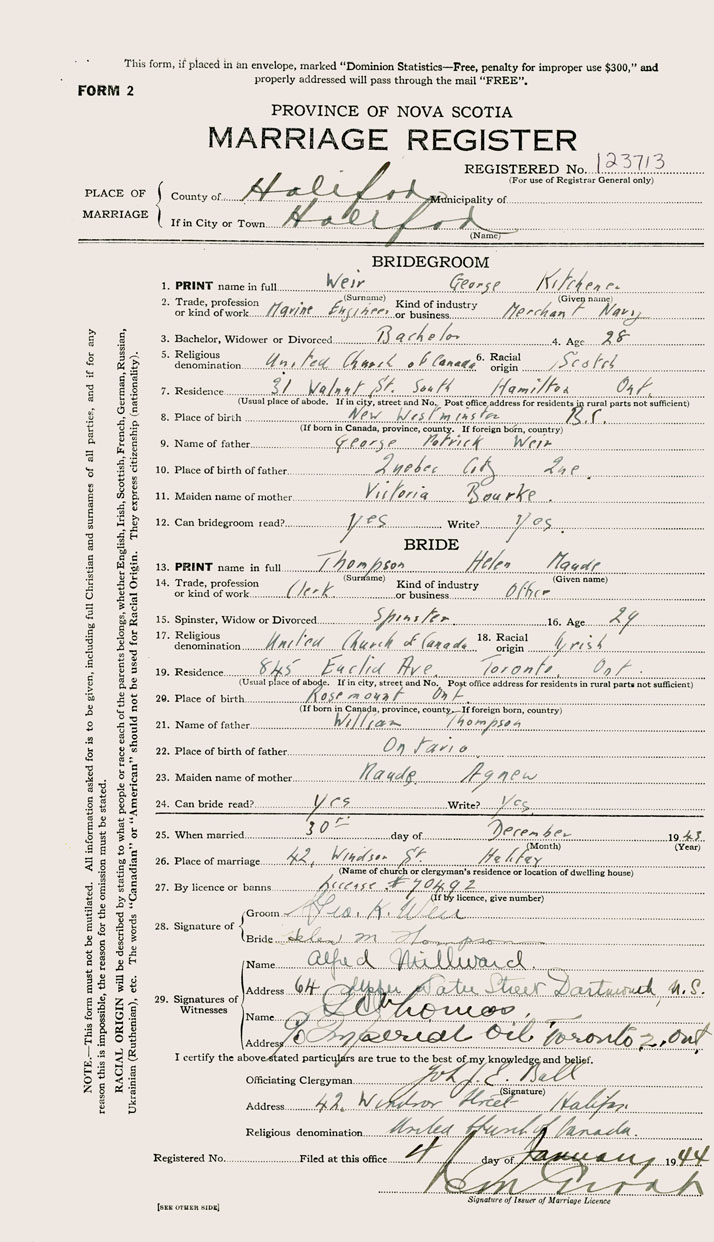 This form, if placed in an envelope, marked "Dominion Statistics—Free, penalty for improper use $300," and
properly addressed will pass through the mail "FREE".
FORM 2
PROVINCE OF NOVA SCOTIA
MARRIAGE REGISTER
REGISTERED No. 123713
(For use of Registrar General only)
PLACE OF MARRIAGE
County of Halifax Municipality of
If in City or Town Halifax
(Name)
BRIDEGROOM
1. PRINT name in full Weir George Kitchener
(Surname) (Given name)
2. Trade, profession or kind of work Marine Engineer Kind of industry or business Merchant Navy
3. Bachelor, Widower or Divorced Bachelor 4. Age 28
5. Religious denomination United Church of Canada 6. Racial origin Scotch
7. Residence 31 Walnut St. South Hamilton Ont.
(Usual place of abode. If in city, street and No. Post office address for residents in rural parts not sufficient)
8. Place of birth New Westminster B.C.
(If born in Canada, province, county. If foreign born, country)
9. Name of father George Patrick Weir
10. Place of birth of father Quebec City Que.
11. Maiden name of mother Victoria Bourke
12. Can bridegroom read? yes Write? Yes
BRIDE
13. PRINT name in full Thompson Helen Maude
(Surname) (Given name)
14. Trade, profession or kind of work Clerk Kind of industry or business Office
15. Spinster, Widow or Divorced Spinster 16. Age 29
17. Religious denomination United Church of Canada 18. Racial origin Irish
19. Residence 845 Euclid Ave. Toronto, Ont.
(Usual place of abode. If in city, street and No. Post office address for residents in rural parts not sufficient)
20. Place of birth Rosemount Ont.
(If born in Canada, province, county. If foreign born, country)
21. Name of father William Thompson
22. Place of birth of father Ontario
23. Maiden name of mother Maude Agnew
24. Can bride read? Yes Write? Yes
25. When married 30th day of December 1943
(Month) (Year)
26. Place of marriage 42, Windsor St Halifax
(Name of church or clergyman's residence or location of dwelling house)
27. By licence or banns License #70492
(If by licence, give number)
28. Signature of
Groom Geo. K. Weir
Bride Helen M Thompson
29. Signatures of Witnesses
Name Alfred Millward
Address 64 Upper Water Street Dartmouth, N.S.
Name Thomas,
Address c/o Imperial Oil, Toronto 2, Ont
I certify the above stated particulars are true to the best of my knowledge and belief.
Officiating Clergyman J. E. Bell
(Signature)
Address 42, Windsor Street Halifax
Religious denomination United Church of Canada.
Registered No. Filed at this office 4 day of January 1944
Signature of Issuer of Marriage Licence
[SEE OTHER SIDE]
NOTE.—This form must not be mutilated. All information asked for is to be given, including full Christian and surnames of all parties, and if for any
reason this is impossible, the reason for the omission must be stated.
RACIAL ORIGIN will be described by stating to what people or race each of the parents belongs, whether English, Irish, Scottish, French, German, Russian,
Ukrainian (Ruthenian), etc. The words "Canadian" or "American" should not be used for Racial Origin. They express citizenship (nationality).